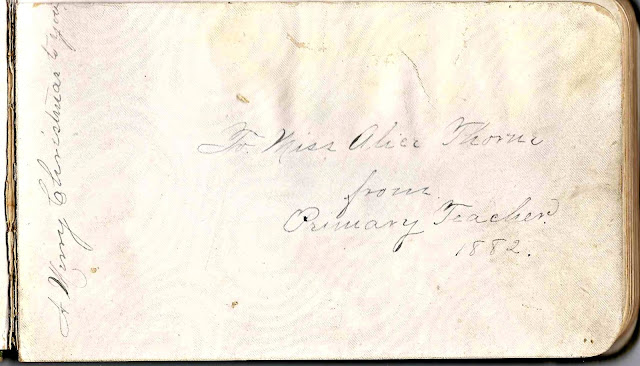 To Miss Alice Thorne
from
Primary Teacher.
1882.
A Merry Christmas to you